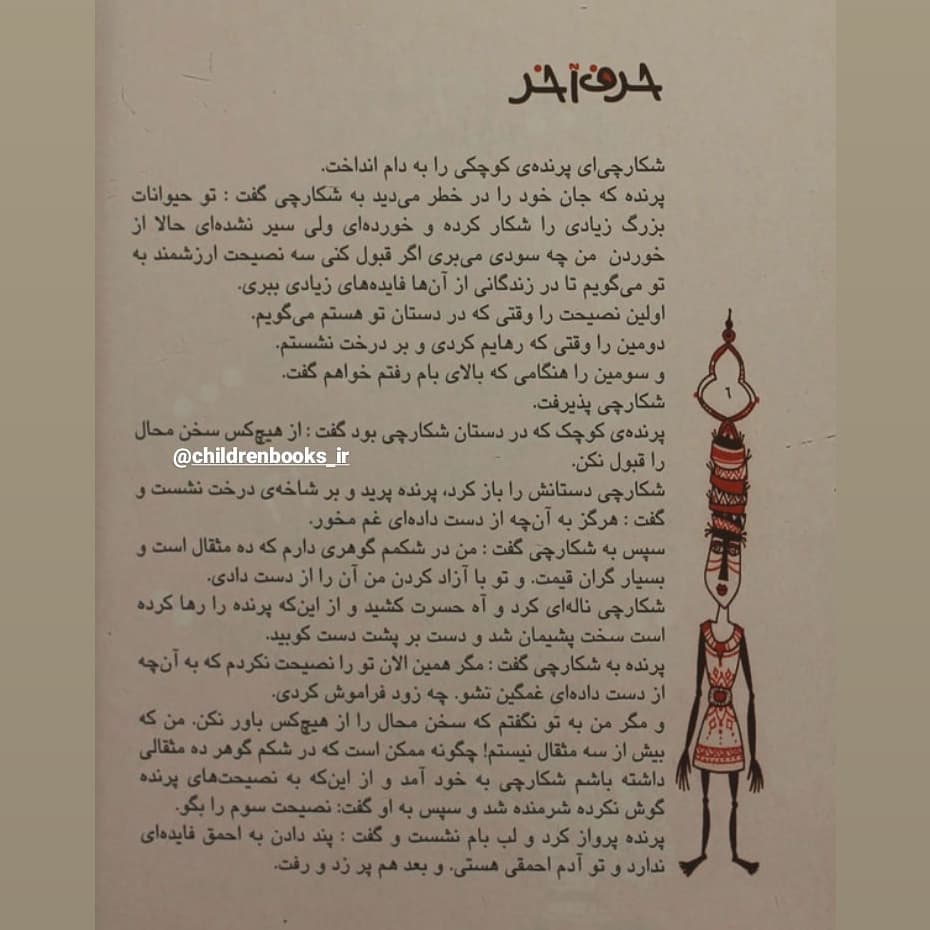 حرف آخر
شکارچی‌ای پرنده‌ی کوچکی را به دام انداخت.
پرنده که جان خود را در خطر می‌دید به شکارچی گفت : تو حیوانات
بزرگ زیادی را شکار کرده و خورده‌ای ولی سیر نشده‌ای حالا از
خوردن من چه سودی می‌بری اگر قبول کنی سه نصیحت ارزشمند به
تو می‌گویم تا در زندگانی از آن‌ها فایده‌های زیادی ببری.
اولین نصیحت را وقتی که در دستان تو هستم می‌گویم.
دومین را وقتی که رهایم کردی و بر درخت نشستم.
و سومین را هنگامی که بالای بام رفتم خواهم گفت.
۶
شکارچی پذیرفت.
پرنده‌ی کوچک که در دستان شکارچی بود گفت : از هیچ‌کس سخن محال
را قبول نکن.
@childrenbooks_ir
شکارچی دستانش را باز کرد، پرنده پرید و بر شاخه‌ی درخت نشست و
گفت : هرگز به آن‌چه از دست داده‌ای غم مخور.
سپس به شکارچی گفت : من در شکمم گوهری دارم که ده مثقال است و
بسیار گران قیمت. و تو با آزاد کردن من آن را از دست دادی.
شکارچی ناله‌ای کرد و آه حسرت کشید و از این‌که پرنده را رها کرده
است سخت پشیمان شد و دست بر پشت دست کوبید.
پرنده به شکارچی گفت : مگر همین الان تو را نصیحت نکردم که به آن‌چه
از دست داده‌ای غمگین نشو. چه زود فراموش کردی.
و مگر من به تو نگفتم که سخن محال را از هیچ‌کس باور نکن. من که
بیش از سه مثقال نیستم! چگونه ممکن است که در شکم گوهر ده مثقالی
داشته باشم شکارچی به خود آمد و از این‌که به نصیحت‌های پرنده
گوش نکرده شرمنده شد و سپس به او گفت: نصیحت سوم را بگو.
پرنده پرواز کرد و لب بام نشست و گفت : پند دادن به احمق فایده‌ای
ندارد و تو آدم احمقی هستی. و بعد هم پر زد و رفت.